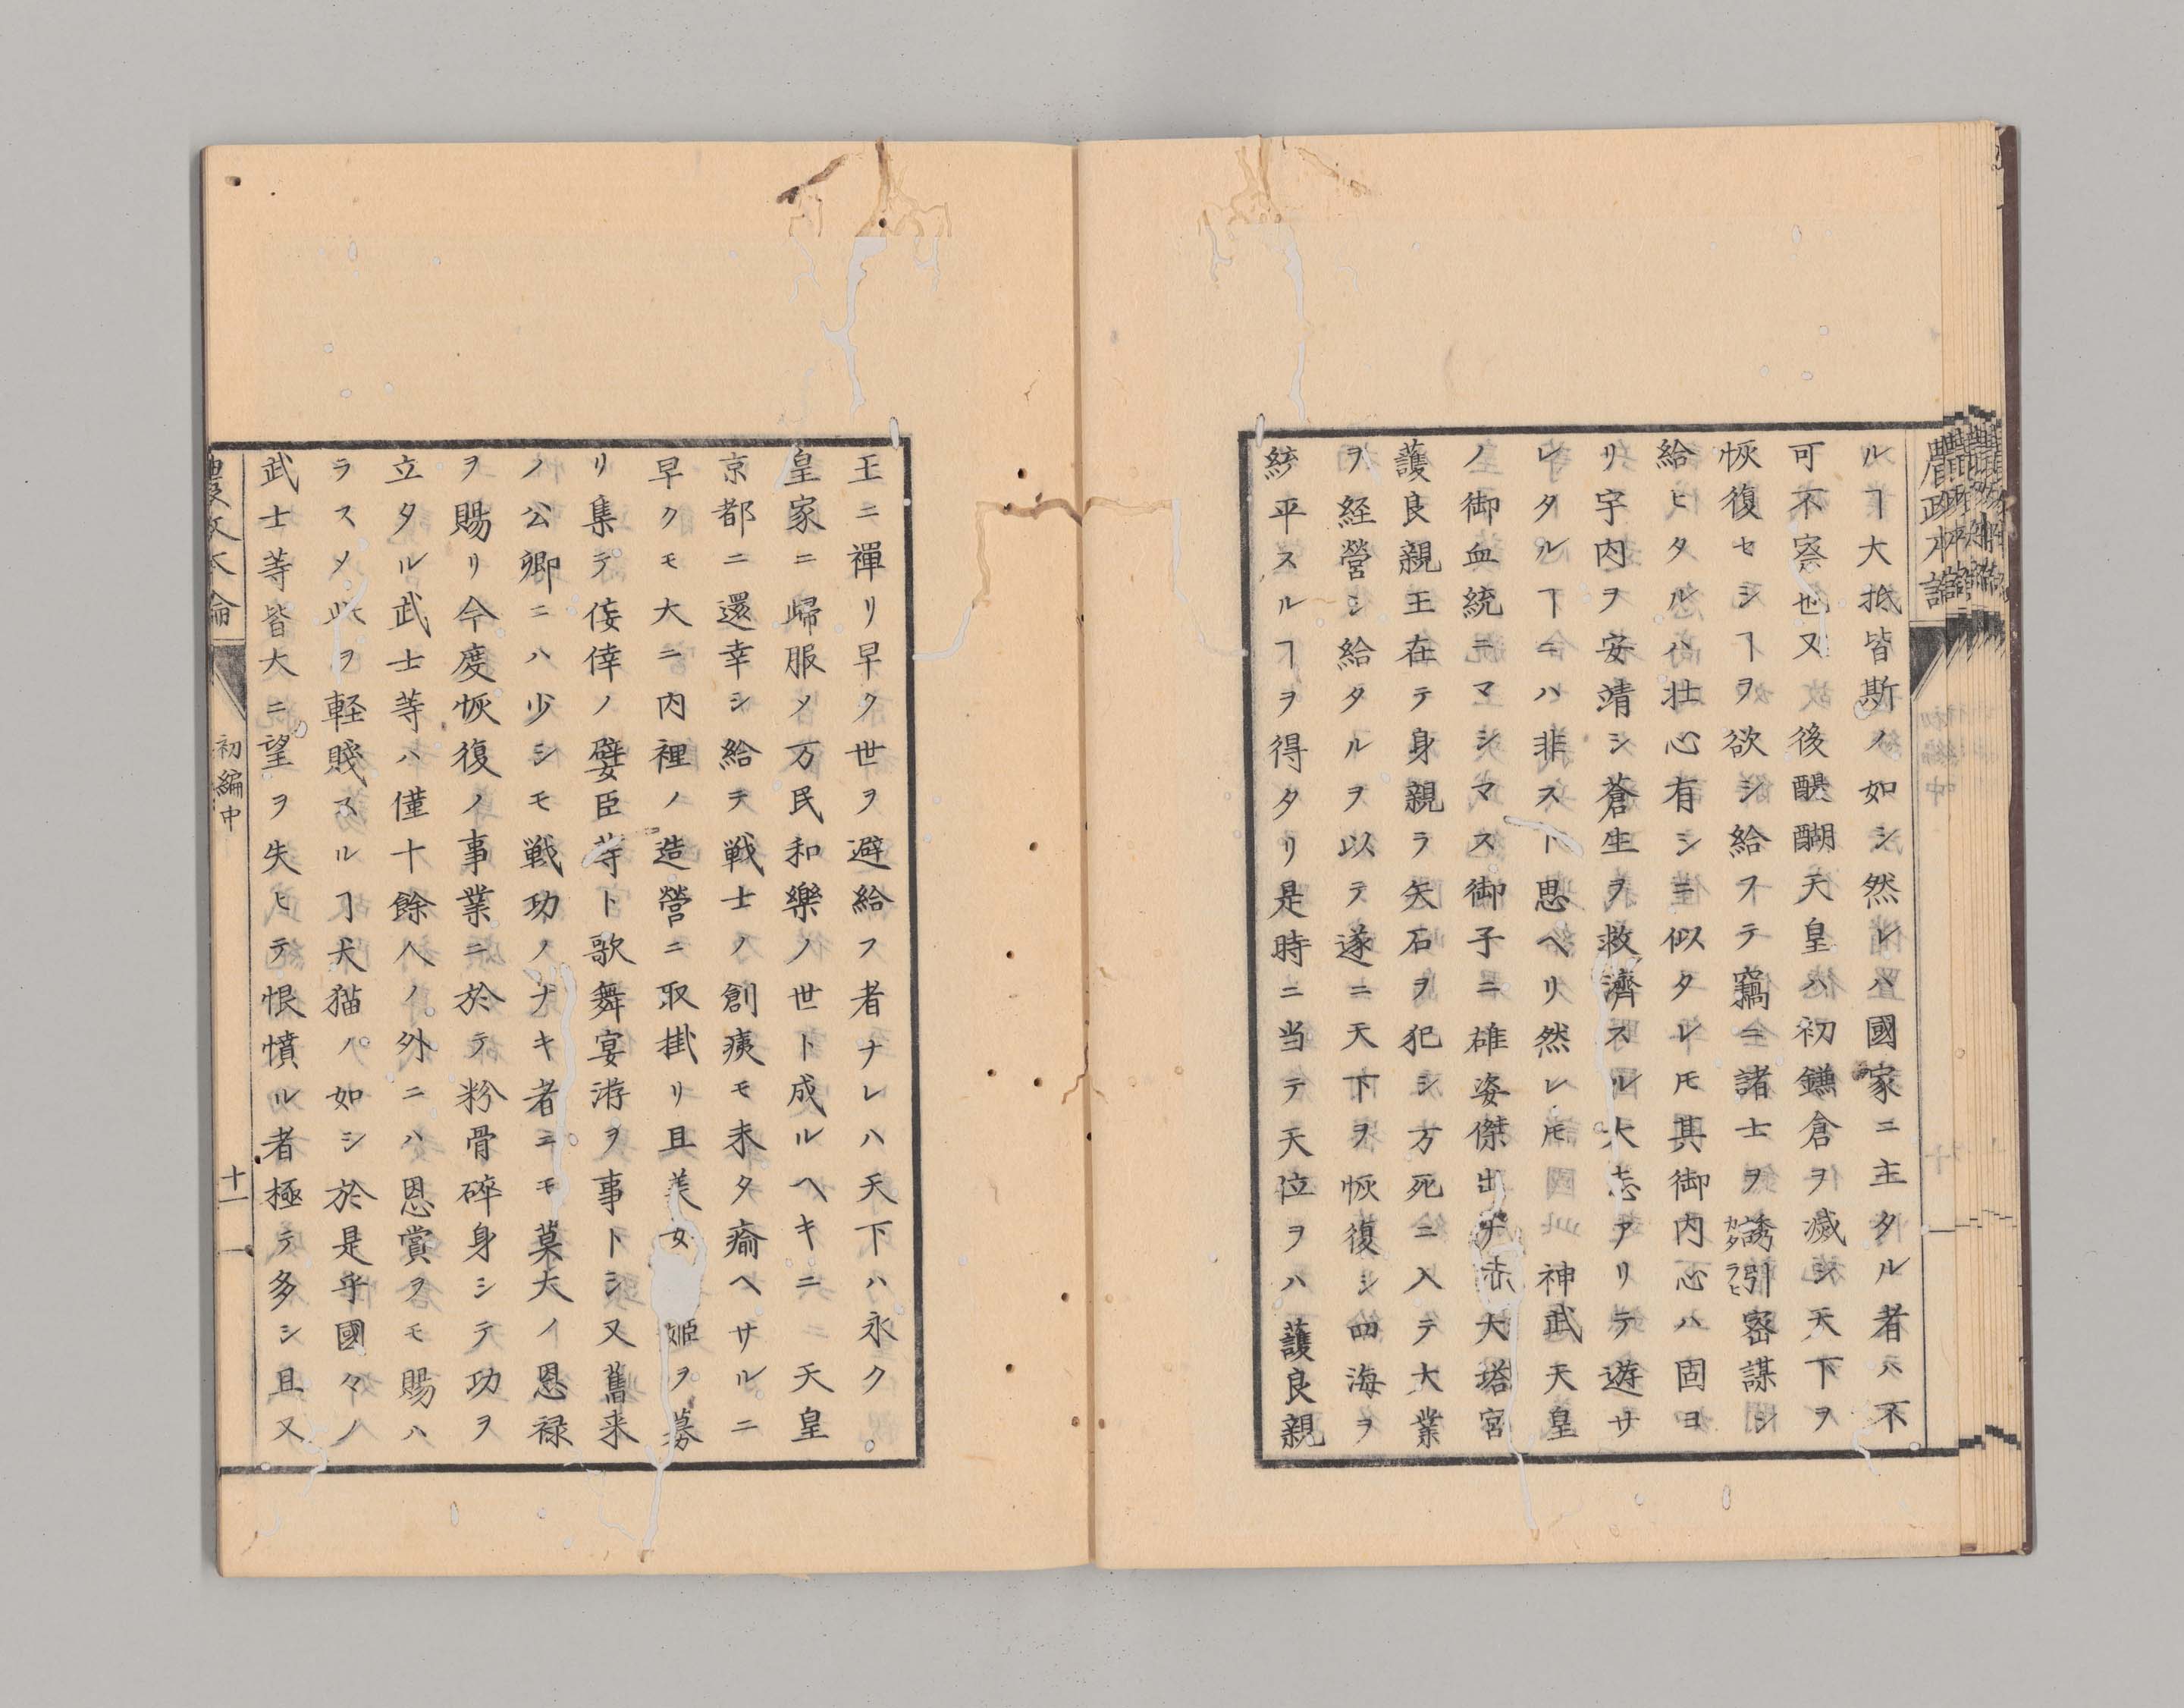 ルヿ大抵皆斯ノ如シ然レハ國家ニ主タル者ハ不
可不察也又後醍醐天皇ハ初鎌倉ヲ滅シ天下ヲ
恢復セシヿヲ欲シ給フテ竊ニ諸士ヲ誘引カタラヒ密謀シ
給ヒタルハ壮心有シニ似タレ𪜈其御内心ハ固ヨ
リ宇内ヲ安靖シ蒼生ヲ救濟スル大志アリテ遊サ
レタルヿニハ非スト思ヘリ然レ𪜈神武天皇
ノ御血統ニマシマス御子ニ雄姿傑出ナ大塔宮
護良親王在テ身親ラ矢石ヲ犯シ万死ニ入テ大業
ヲ経營シ給タルヲ以テ遂ニ天下ヲ恢復シ四海ヲ
統平スルヿヲ得タリ是時ニ当テ天位ヲハ護良親
王ニ禪リ早ク世ヲ避給フ者ナレハ天下ハ永ク
皇家ニ歸服メ万民和樂ノ世ト成ルヘキニ天皇
京都ニ還幸シ給テ戦士ノ創痍モ未タ癒ヘサルニ
早クモ大ニ内裡ノ造營ニ取掛リ且美女姫ヲ募
リ集テ侫倖ノ嬖臣等ト歌舞宴游ヲ事トシ又舊来
ノ公卿ニハ少シモ戦功ノナキ者ニモ莫大ノ恩禄
ヲ賜リ今度恢復ノ事業ニ於テ粉骨碎身シテ功ヲ
立タル武士等ハ僅十餘人ノ外ニハ恩賞ヲモ賜ハ
ラスメ此ヲ軽賤スルヿ犬猫ノ如シ於是乎國々ノ
武士等皆大ニ望ヲ失ヒテ恨憤ル者極テ多シ且又
農政本論
初編中
十一